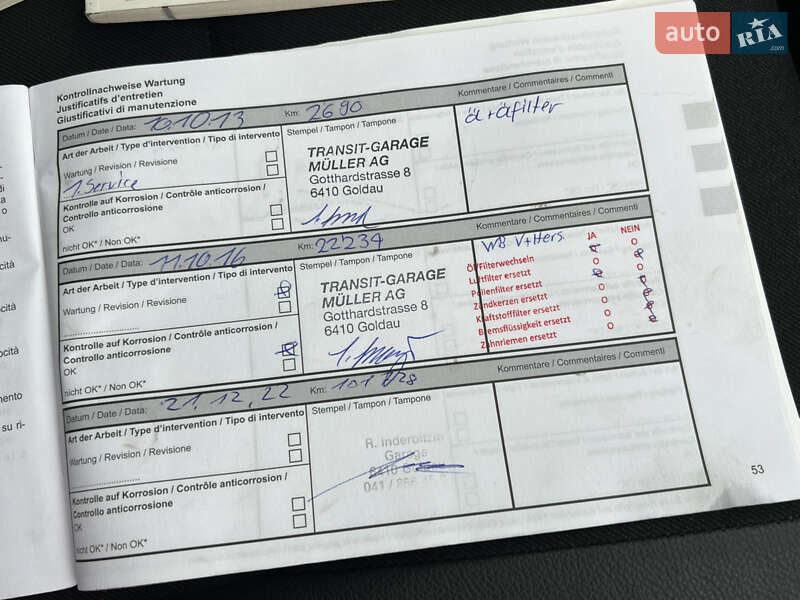 auto RIA
.com
Kontrollnachweise Wartung
Justificatifs d'entretien
Giustificativi di manutenzione
Datum / Date / Data: 10.10.13 Km: 2690 Kommentare / Commentaires / Commenti
Art der Arbeit / Type d'intervention / Tipo di intervento
Wartung / Revision / Revisione
1. Service
Kontrolle auf Korrosion / Contrôle anticorrosion /
Controllo anticorrosione
OK
nicht OK* / Non OK*
Stempel / Tampon / Tampone
TRANSIT-GARAGE
MÜLLER AG
Gotthardstrasse 8
6410 Goldau
Datum / Date / Data: 11.10.16 Km: 22234 Kommentare / Commentaires / Commenti
Art der Arbeit / Type d'intervention / Tipo di intervento
Wartung / Revision / Revisione
Kontrolle auf Korrosion / Contrôle anticorrosion /
Controllo anticorrosione
OK
nicht OK* / Non OK*
Stempel / Tampon / Tampone
TRANSIT-GARAGE
MÜLLER AG
Gotthardstrasse 8
6410 Goldau
JA NEIN
Luftfilter ersetzt
Pollenfilter ersetzt
Zündkerzen ersetzt
Kraftstofffilter ersetzt
Bremsflüssigkeit ersetzt
Zahnriemen ersetzt
Datum / Date / Data: 21.12.22 Km: Kommentare / Commentaires / Commenti
Art der Arbeit / Type d'intervention / Tipo di intervento
Wartung / Revision / Revisione
Kontrolle auf Korrosion / Contrôle anticorrosion /
Controllo anticorrosione
OK
nicht OK* / Non OK*
Stempel / Tampon / Tampone
R. Inderbitzin
Garage
6410
041 / 855
53